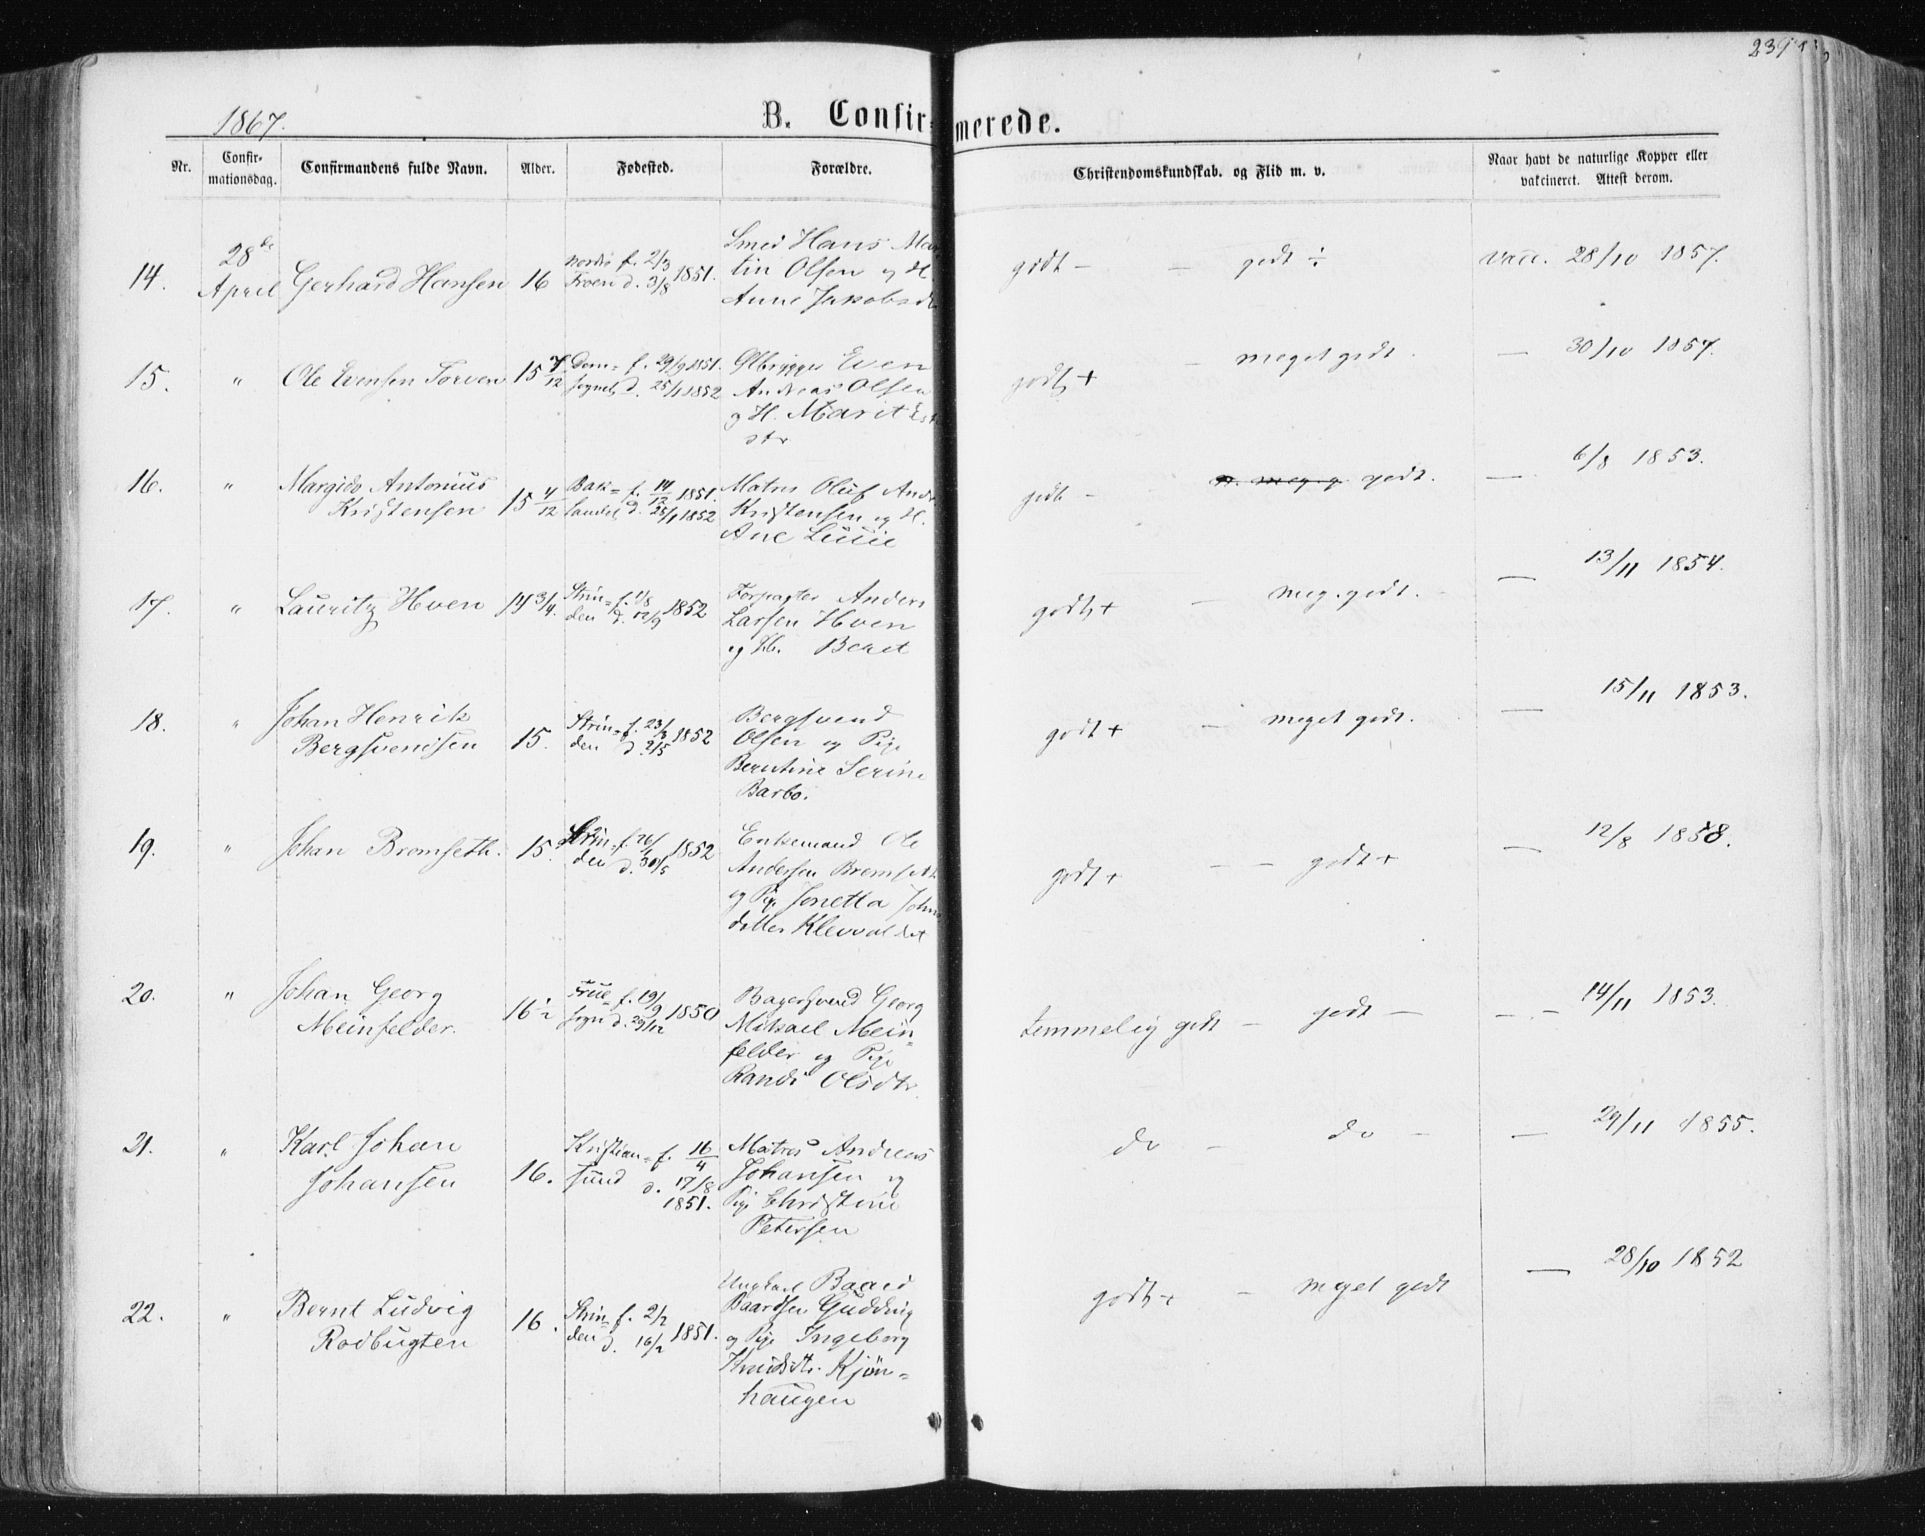 239
1867.
B. Confirmerede.
Nr. Confirmationsdag. Confirmandens fulde Navn. Alder. Fødested. Forældre. Christendomskundskab. og Flid m. v. Naar havt de naturlige Kopper eller vakcineret. Attest derom.
14. 28de April Gerhard Hansen 16 f. 2/3 d. 3/8 1851. Smed Hans Mar
tin Olsen og H.
Anne Jakobsd
godt - - godt ÷ vacc. 28/10 1857.
15. " Ole Evensen Torven 15 7/12 Dom= f. 29/9 1851.
sognet d. 25/1 1852
Ølbrygger Even
Andreas Olsen
og H. Marit
dtr
godt + - meget godt. — 30/10 1857.
16. " Margido Antonius
Kristensen 15 4/12 Bak= f. 14/12 1851.
landet d. 25/1 1852
Matros Oluf Andr
Kristensen og H.
Ane Lucie
godt - meg. g. godt. — 6/8 1853.
17. " Lauritz Hven 14 3/4. Strin= f. 1/8
den d. 12/9 1852
Forpagter Anders
Larsen Hven
og Beret
godt + - meg. godt. — 13/11 1854.
18. " Johan Henrik
Bergsvendsen 15. Strin= f. 23/3
den d. 2/5 1852
Bergsvend
Olsen og Pige
Berntine Serine
Barbo.
godt + — meget godt. — 15/11 1853.
19. " Johan Bromseth. 15. Strin= f. 26/1
den d. 30/5 1852
Enkemand Ole
Andersen Bromseth
og Pig. Jonetta Johns
datter Klevval
godt + - - godt + — 12/8 1858.
20. " Johan Georg
Meinfelder. 16 1/2 Frue= f. 19/9
sogn d. 29/12 1850
Bagersvend Georg
Mikael Mein=
felder og Pige
Randi Olsdtr.
temmelig godt — godt — - - 14/11 1853.
21. " Karl Johan
Johansen 16. Kristian= f. 16/4
sund d. 17/8
1851.
Matros Andreas
Johansen og
Pige Christine
Petersen
do - do - — 29/11 1855.
22. " Bernt Ludvig
Rodbugten 16. Strin= f. 2/2
den d. 16/2 1851.
Ungkarl Baard
Baardsen Gudding
og Pige Ingeborg
Knudsdtr. Kjøn=
haugen
godt + — meget godt — 28/10 1852